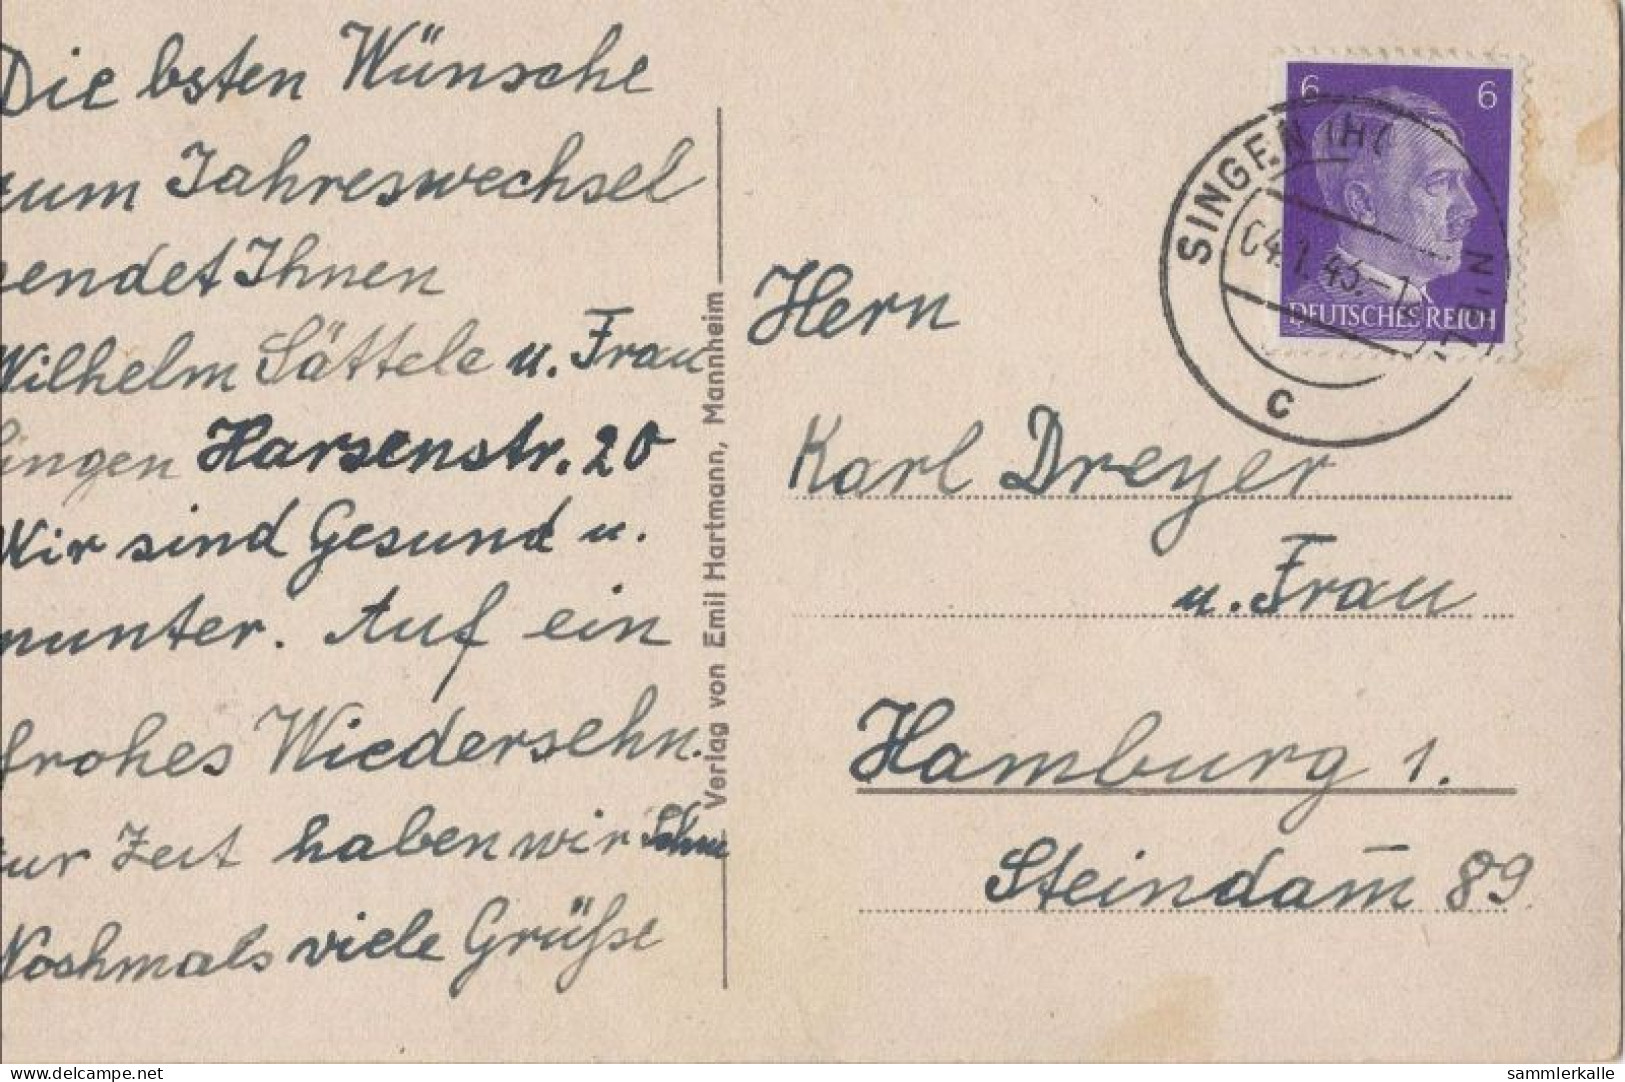 Die bsten Wünsche
zum Jahreswechsel
sendet Ihnen
Wilhelm Sättele u. Frau
Singen Harsenstr. 20
Wir sind Gesund u.
munter. Auf ein
frohes Wiedersehn.
zur Zeit haben wir
Nochmals viele Grüße
Verlag von Emil Hartmann, Mannheim
6 6
DEUTSCHES REICH
SINGEN (H
04.1.43.-
c
Hern
Karl Dreyer
u. Frau
Hamburg 1.
Steindam̅ 89.
delcampe.net
sammlerkalle